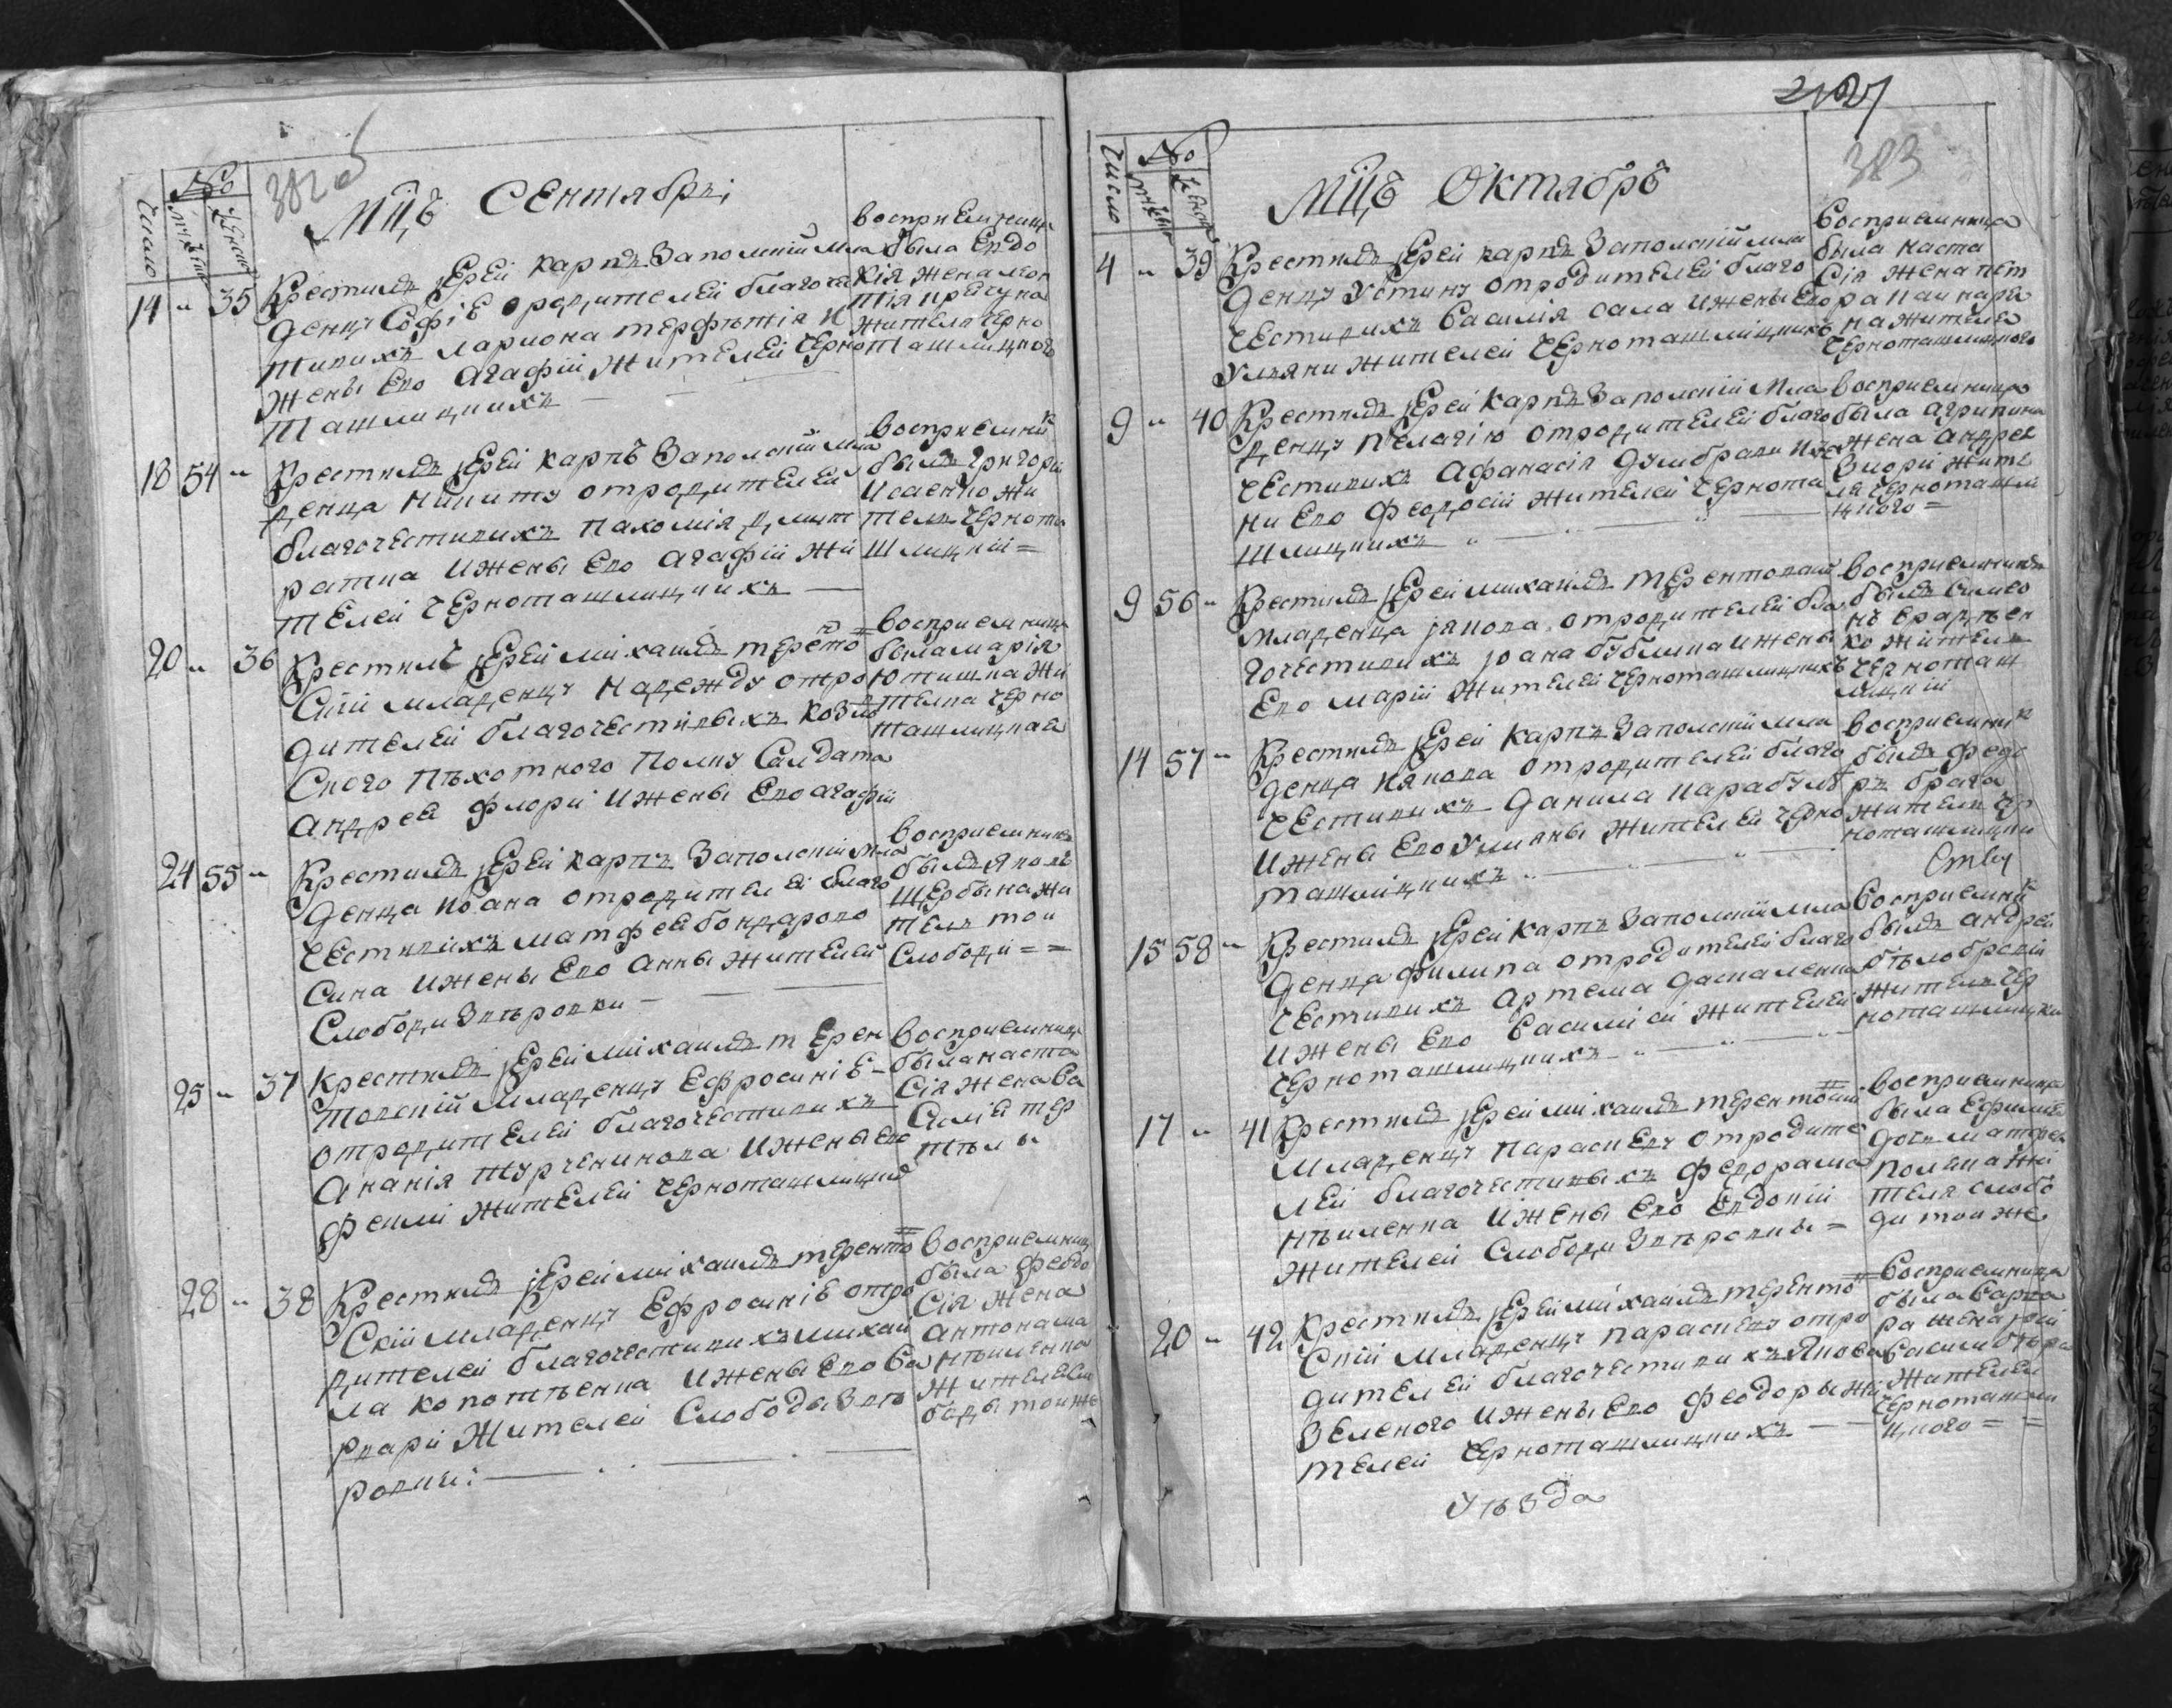 382 об
№
Число
Мїцъ Сентябрӥ
14 " 35
Крестилъ Іерей Карпъ Заполскій мла
денцу Софіѣ о родителей благоче
стивихъ Лариона терфѣтія и
жены Его Агафіи жителей Черно
ташлицкихъ
восприемница
была Евдо
кія жена
жителя Черно
ташлицкого
18 54 "
Крестилъ Іерей Карпъ Заполскій мла
денца Никиту отродителей
благочестивихъ Пахомія Дмит
ратка и жены Его Агафіи жи
телей Черноташлицкихъ
восприемник
былъ Григорій
Исаенко жи
тель Чернота
шлицкій =
20 " 36
Крестилъ Іерей Михаилъ Терето
Скій младенцу Надежду отро
дителей благочестивыхъ Козло
Скаго Пѣхотного Полку Салдата
Андрея Флори и жены Его Агафіи
восприемница
была Марія
жи
телка Черно
ташлицкая
24 55 "
Крестилъ Іерей Карпъ Заполскій мла
денца Иоана отродителей благо
честивихъ Матфея Бондарово
Сина и жены Его Анны жителей
Слободи Звѣровки
восприемникъ
былъ Яковъ
Щербына жи
тель той
Слободи = =
25 " 37
Крестилъ Іерей Михаилъ Терен
товскій младенцу Ефросиніѣ
отродителей благочестивихъ
Ананія Турченикова и жены Его
Фекли жителей Черноташлицких
восприемница
была Наста
Сія жена Ва
Силія тер
тѣлы
28 " 38
Крестилъ Іерей Михаилъ Теренто
Скій младенцу Ефросиніѣ отро
дителей благочестивихъ Михай
ла Копотѣенка и жены Его Ва
рвари жителей Слободы Звѣ
ровки:
восприемниц
была Феодо
Сія жена
Антона Ма
нѣиленка
жителя Сло
боды тоижъ
2127
383
№
Число
Мїцъ Октябрь
4 " 39
Крестилъ Іерей Карпъ Заполскій мла
денцу Устину отродителей благо
честивихъ Василія Сала и жены Его
Уляни жителей Черноташлицкихъ
восприемница
была Наста
Сія жена Пет
ра
жителя
Черноташлицкого
9 " 40
Крестилъ Іерей Карпъ Заполскій мла
денцу Пелагію отродителей благо
честивихъ Афанасія Думбрави и же
ни Его Феодосіи жителей Чернота
шлицкихъ
восприемница
была Агрипина
жена Андрея
жите
ля Черноташли
цкого =
9 56 "
Крестилъ Іерей Михаилъ Терентовскій
младенца Іякова отродителей бла
гочестивихъ Іоана Бублика и жены
Его Маріи жителей Черноташлицкихъ
восприемникъ
былъ Симео
нъ
ко житель
Черноташ
лицкій
14 57 "
Крестилъ Іерей Карпъ Заполскій мла
денца Иякова отродителей благо
честивихъ Данила Карабуля
и жены Его Улияны жителей Черно
ташлицкихъ
восприемник
былъ Федо
ръ Брага
житель Чер
ноташлицки
15 58 "
Крестилъ Іерей Карпъ Заполскій мла
денца Филипа отродителей благо
честивихъ Артема Даскаленка
и жены Его Василисіи жителей
Черноташлицкихъ
восприемник
былъ Андрей
Бѣлобровій
житель Чер
ноташлицки
17 " 41
Крестилъ Іерей Михаилъ Терентовски
младенцу Параскеву отродите
лей благочестивыхъ Федора Ма
нѣиленка и жены Его Евдокіи
жителей Слободи Звѣровки =
восприемница
была Ефимія
дочь Матфея
жи
теля слобо
ди той же
20 " 42
Крестилъ Іерей Михаилъ Теренто
Скій младенцу Параскеву отро
дителей благочестивихъ Якова
Зеленого и жены Его Феодоры жи
телей Черноташлицкихъ
восприемница
была Варва
ра жена
жителя
Черноташли
цкого = =
Уѣзда